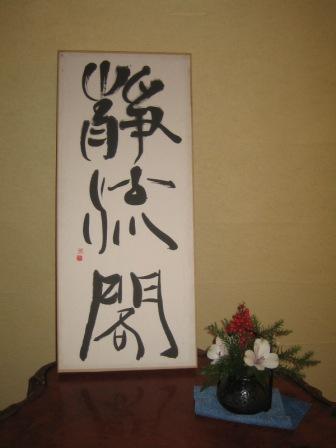 靜流閣